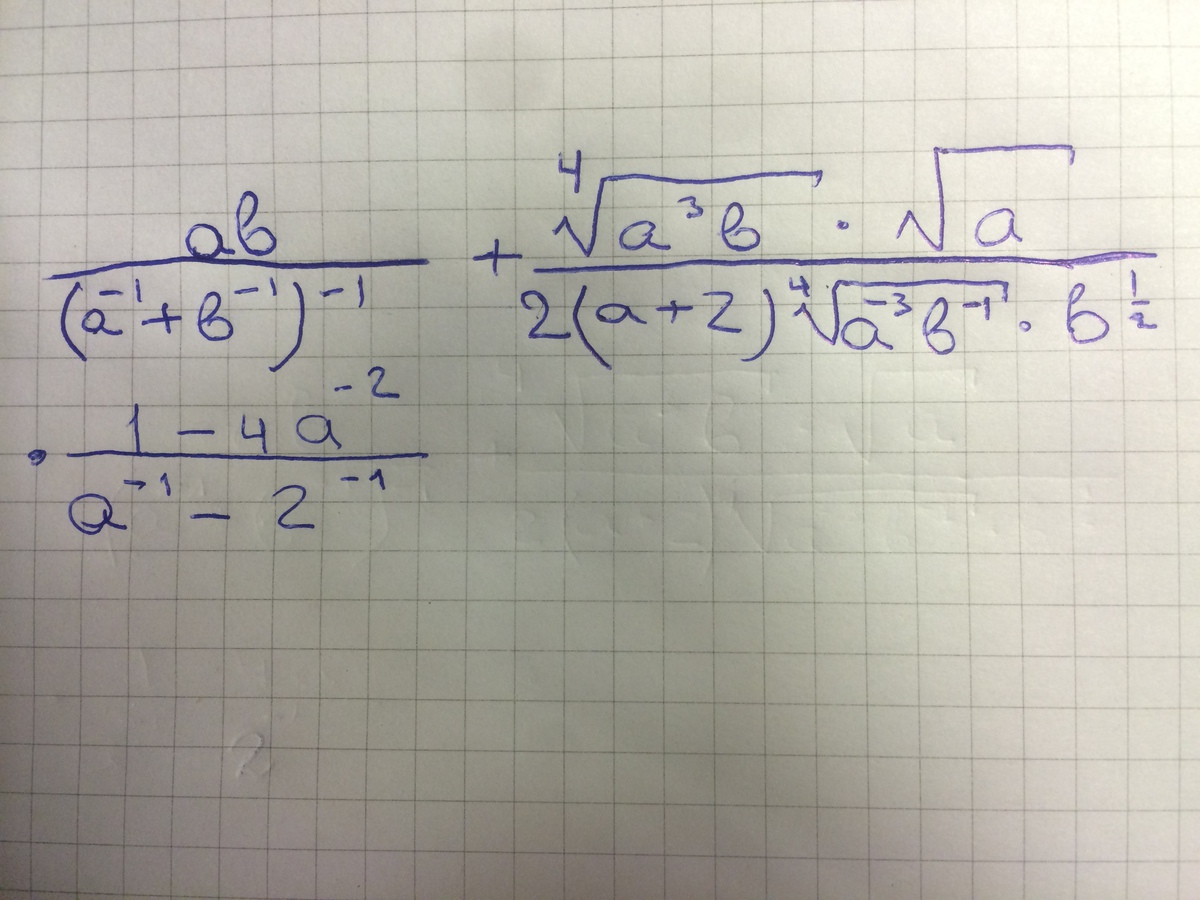 ав / (a⁻¹ + в⁻¹)⁻¹ + ⁴√(a³в) · √a / 2(a+2) ⁴√(a⁻³в⁻¹) · в^(1/2)
· 1 - 4a⁻² / a⁻¹ - 2⁻¹